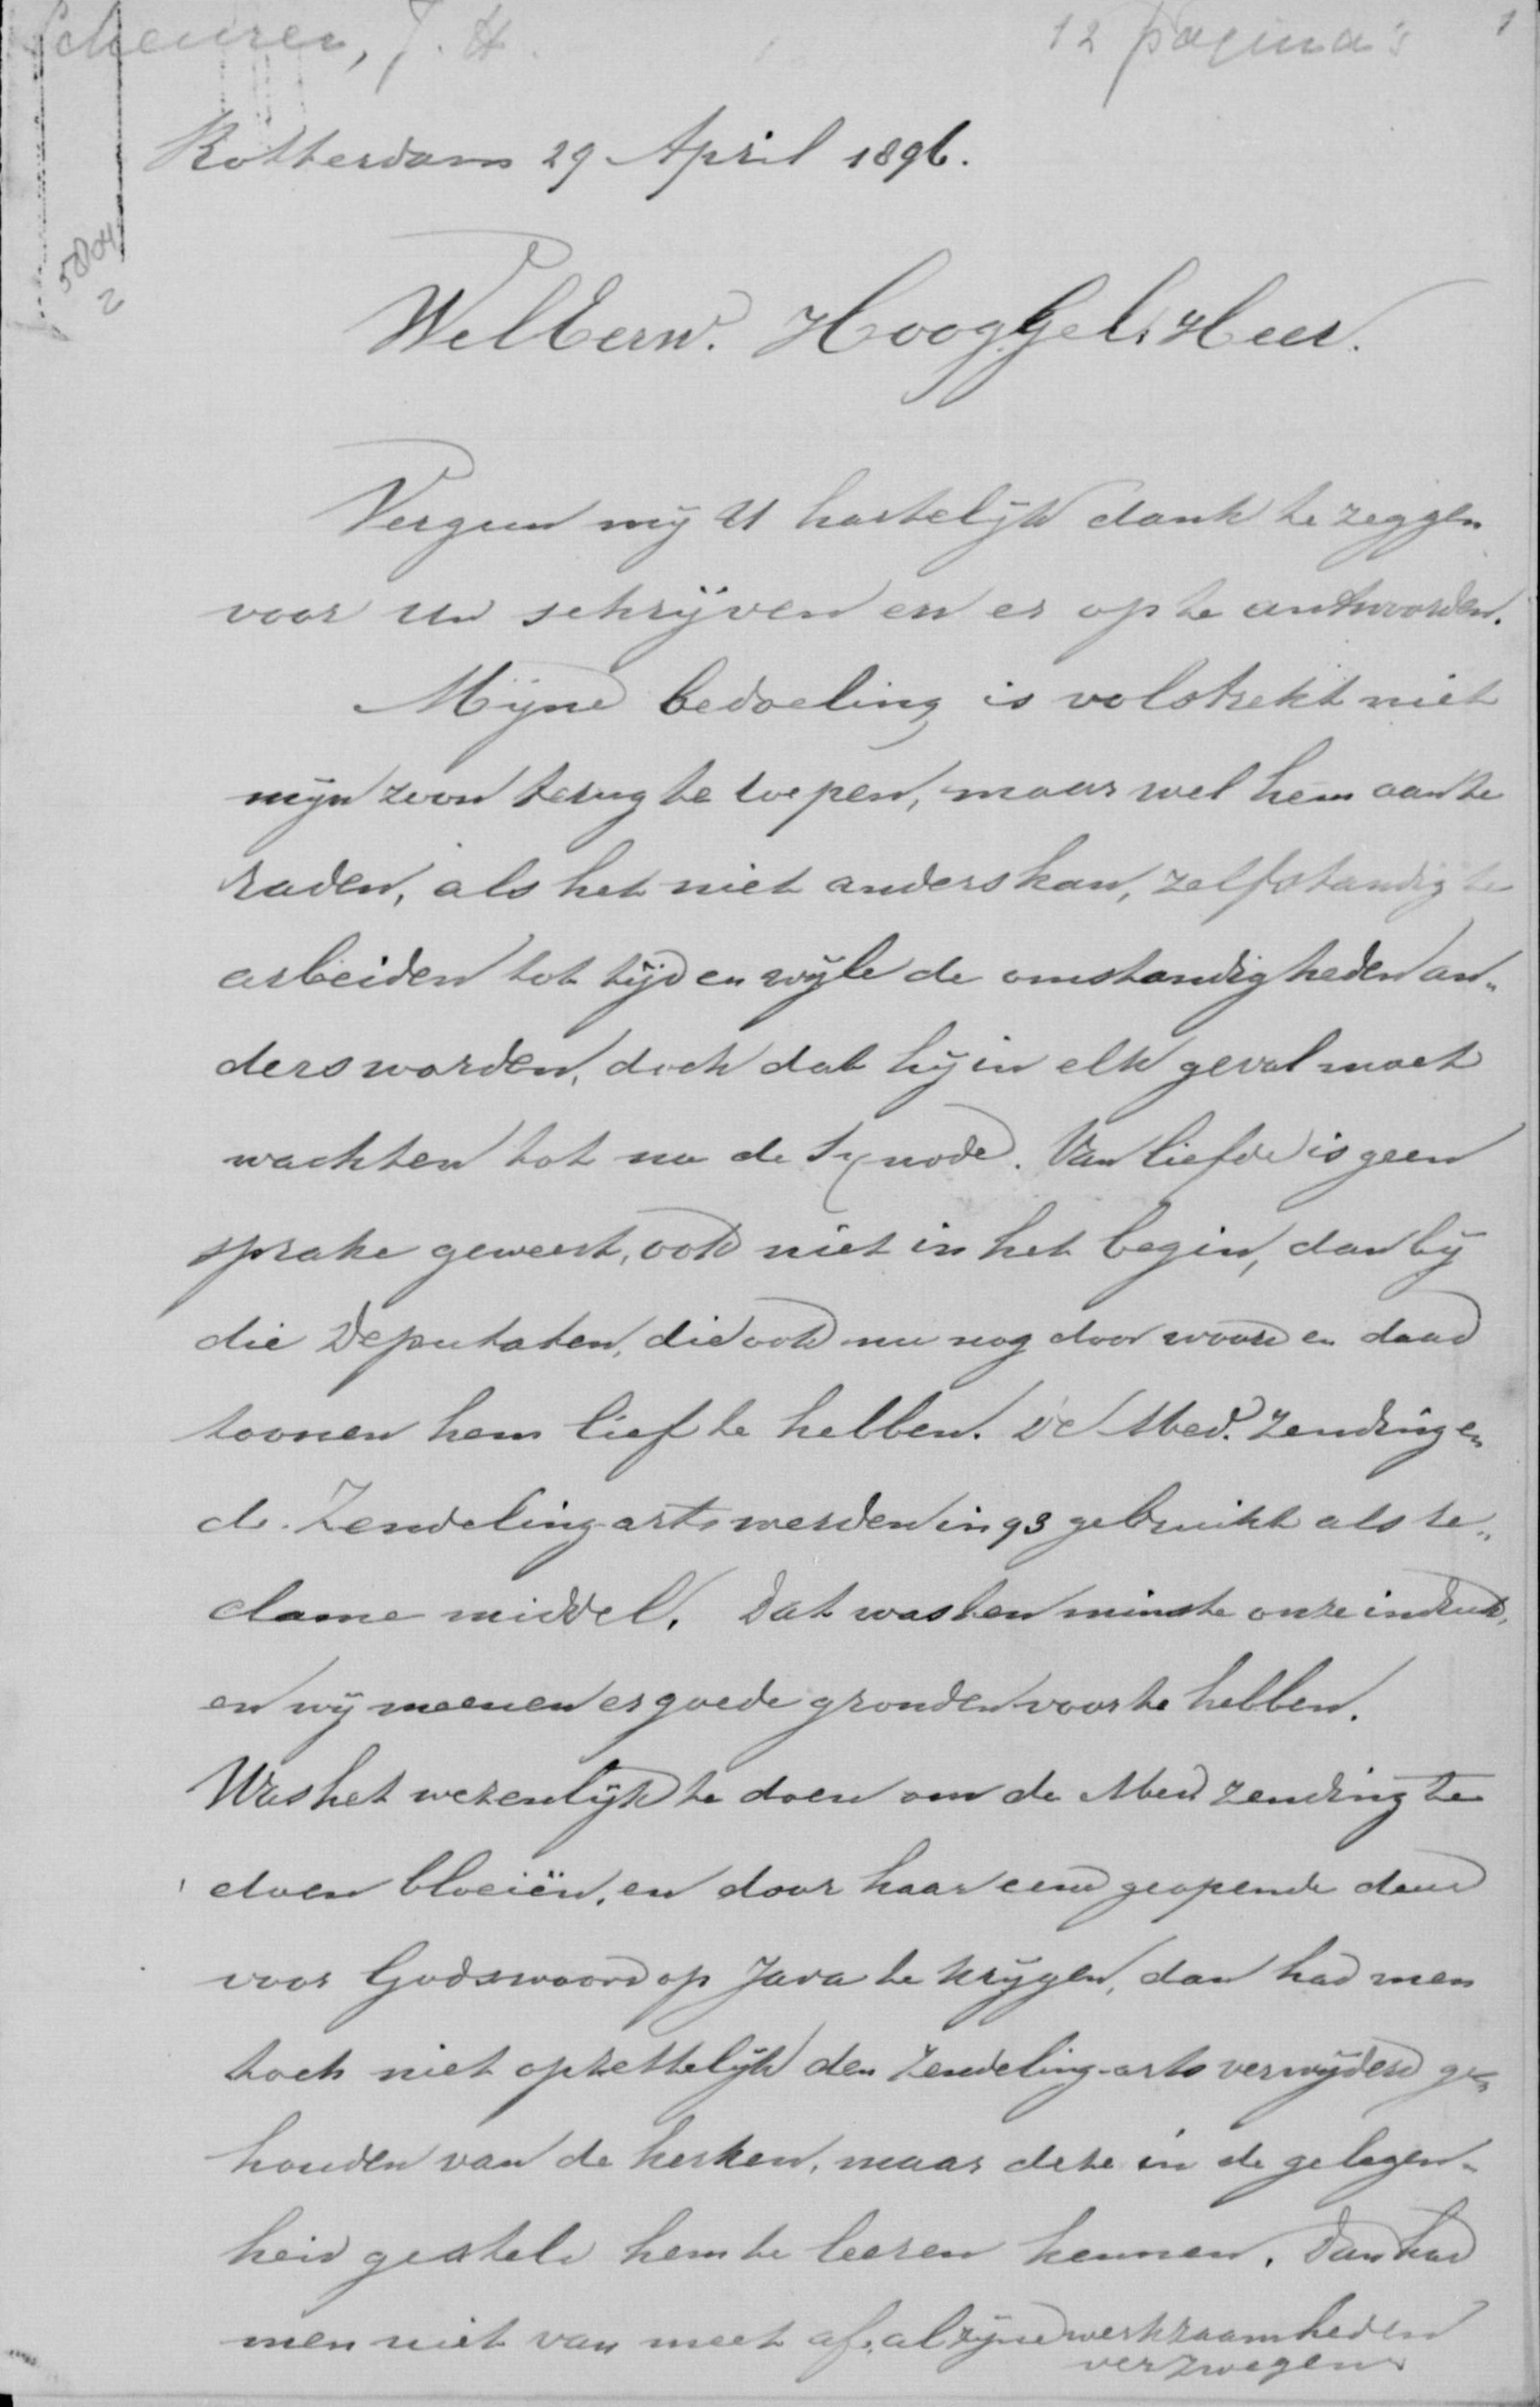 Scheurer, J. H.
12 pagina's
1
5804
2
Rotterdam 29 April 1896.
WelEerw. HoogGel. Heer.
Vergun mij U hartelijk dank te zeggen
voor Uw schrijven en er op te antwoorden.
Mijne bedoeling is volstrekt niet
mijn zoon terug te roepen, maar wel hem aan te
raden, als het niet anders kan, zelfstandig te
arbeiden tot tijd en wijle de omstandigheden an„
ders worden, doch dat hij in elk geval moet
wachten tot na de Synode. Van liefde is geen
sprake geweest, ook niet in het begin, dan bij
die Deputaten, die ook nu nog door woord en daad
toonen hem lief te hebben. De Med. Zending en
de Zendeling-arts werden in 93 gebruikt als re„
clame middel. Dat was ten minste onze indruk,
en wij meenen er goede gronden voor te hebben.
Was het wezenlijk te doen om de Med zending te
doen bloeiën, en door haar eene geopende deur
voor Gods woord op Java te krijgen, dan had men
toch niet opzettelijk den Zendeling-arts verwijderd ge„
houden van de kerken, maar deze in de gelegen„
heid gesteld hem te leeren kennen. Dan had
men niet van meet af al zijne werkzaamheden
verzwegen